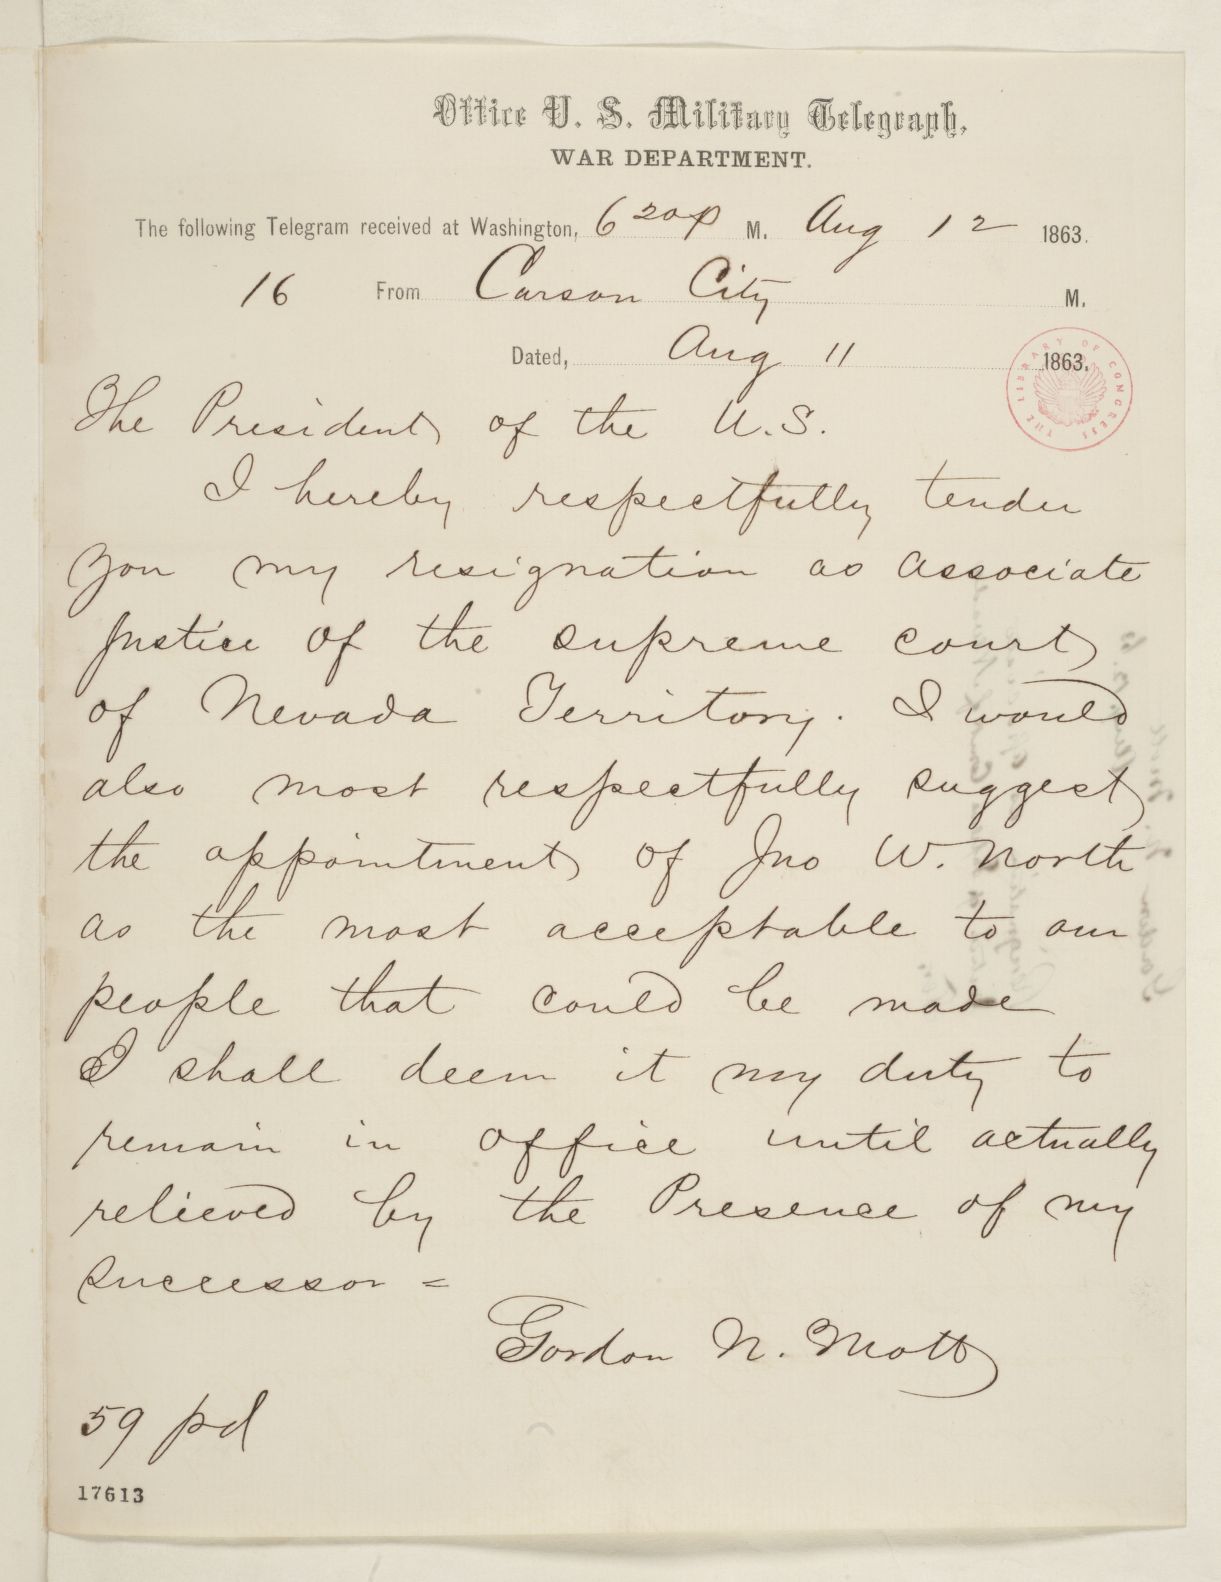 Office U. S. Military Telegraph,
WAR DEPARTMENT.
The following Telegram received at Washington, 6 20 p M. Aug 12 1863.
16 From Carson City M.
Dated, Aug 11 1863.
THE LIBRARY OF CONGRESS
The President of the U.S.
I hereby respectfully tender
you my resignation as associate
Justice of the supreme court
of Nevada Territory. I would
also most respectfully suggest
the appointment of Jno W. North
as the most acceptable to our
people that could be made
I shall deem it my duty to
remain in office until actually
relieved by the Presence of my
successor =
Gordon N. Mott
59 pd
17613